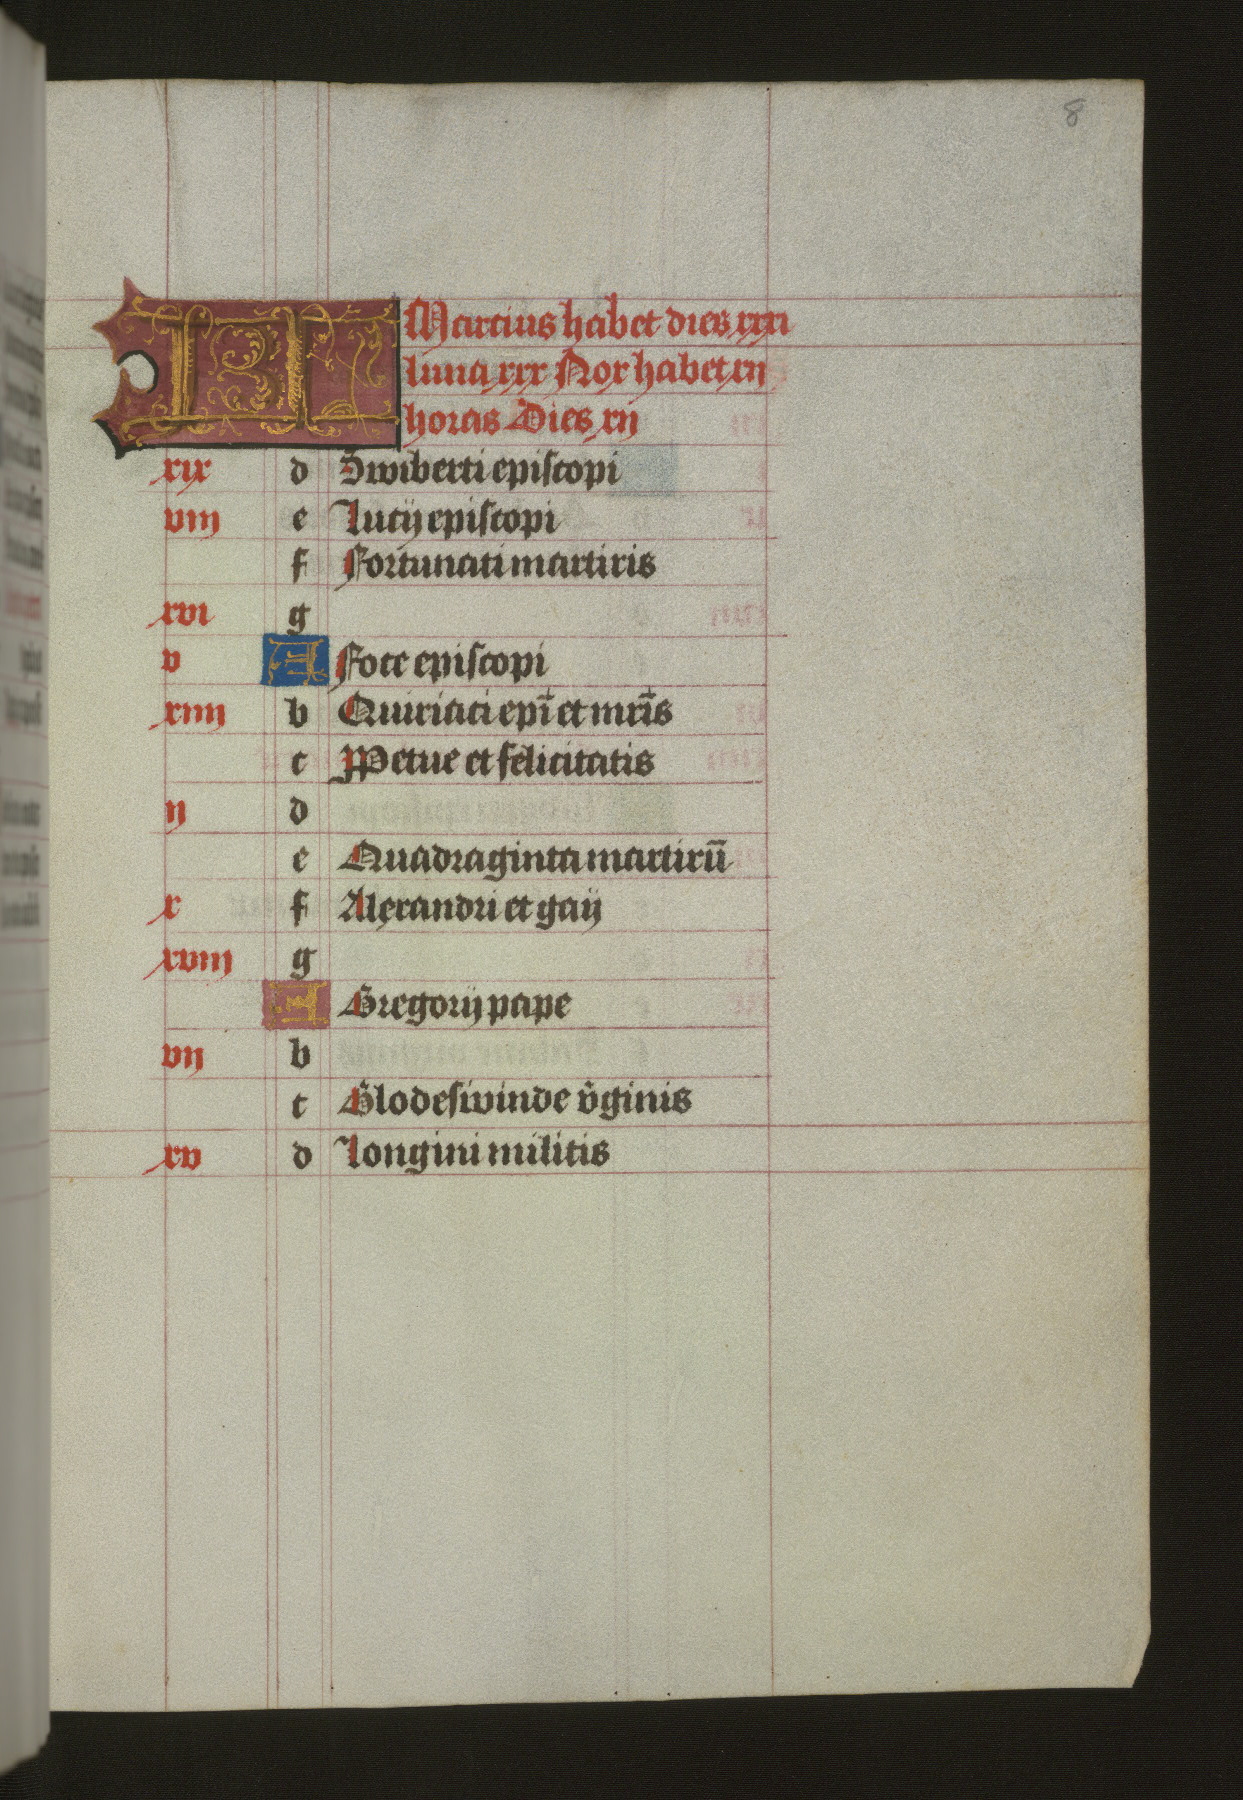 8
KL Marcius habet dies xxxi
luna xxx Nox habet xij
horas Dies xij
xix d Swiberti episcopi
viij e Lucij episcopi
f Fortunati martiris
xvi g
v A Foce episcopi
xiiij b Quiriaci epī et mrīs
c Ppetue et felicitatis
ij d
e Quadraginta martirū
x f Alexandri et gaij
xviij g
A Gregorij pape
vij b
c Glodesiwinde v̄ginis
xv d Longini militis